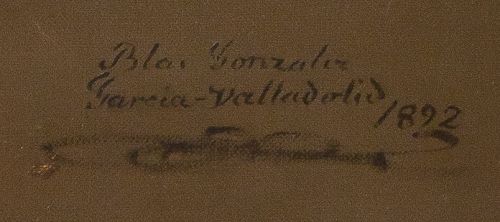 Blas Gonzalez
Garcia-Valladolid
1892